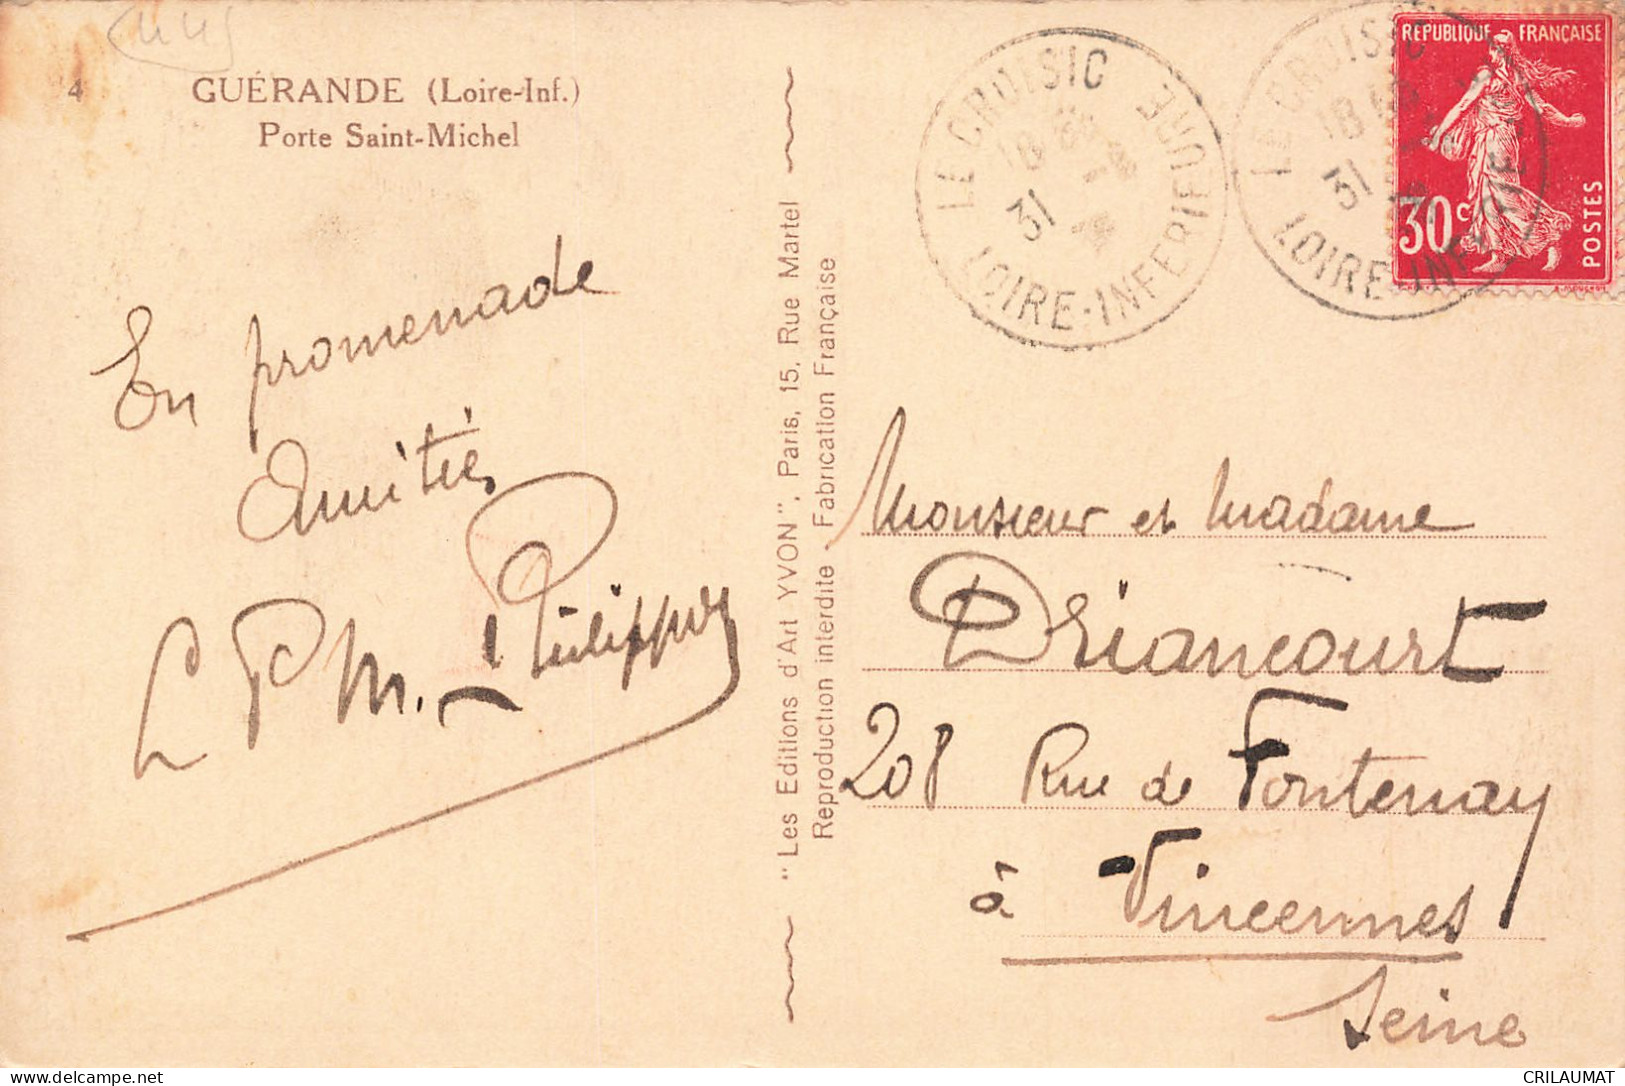 4
GUÉRANDE (Loire-Inf.)
Porte Saint-Michel
En promenade
Amitiés
"Les Editions d'Art YVON", Paris, 15, Rue Martel
Reproduction interdite - Fabrication Française
LE CROISIC
18
31
LOIRE-INFERIEURE
LE CROISIC
18
31
LOIRE-INFERIEURE
REPUBLIQUE FRANÇAISE
30c
POSTES
Monsieur et Madame
Driancourt
208 Rue de Fontenay
à Vincennes
Seine
CRILAUMAT